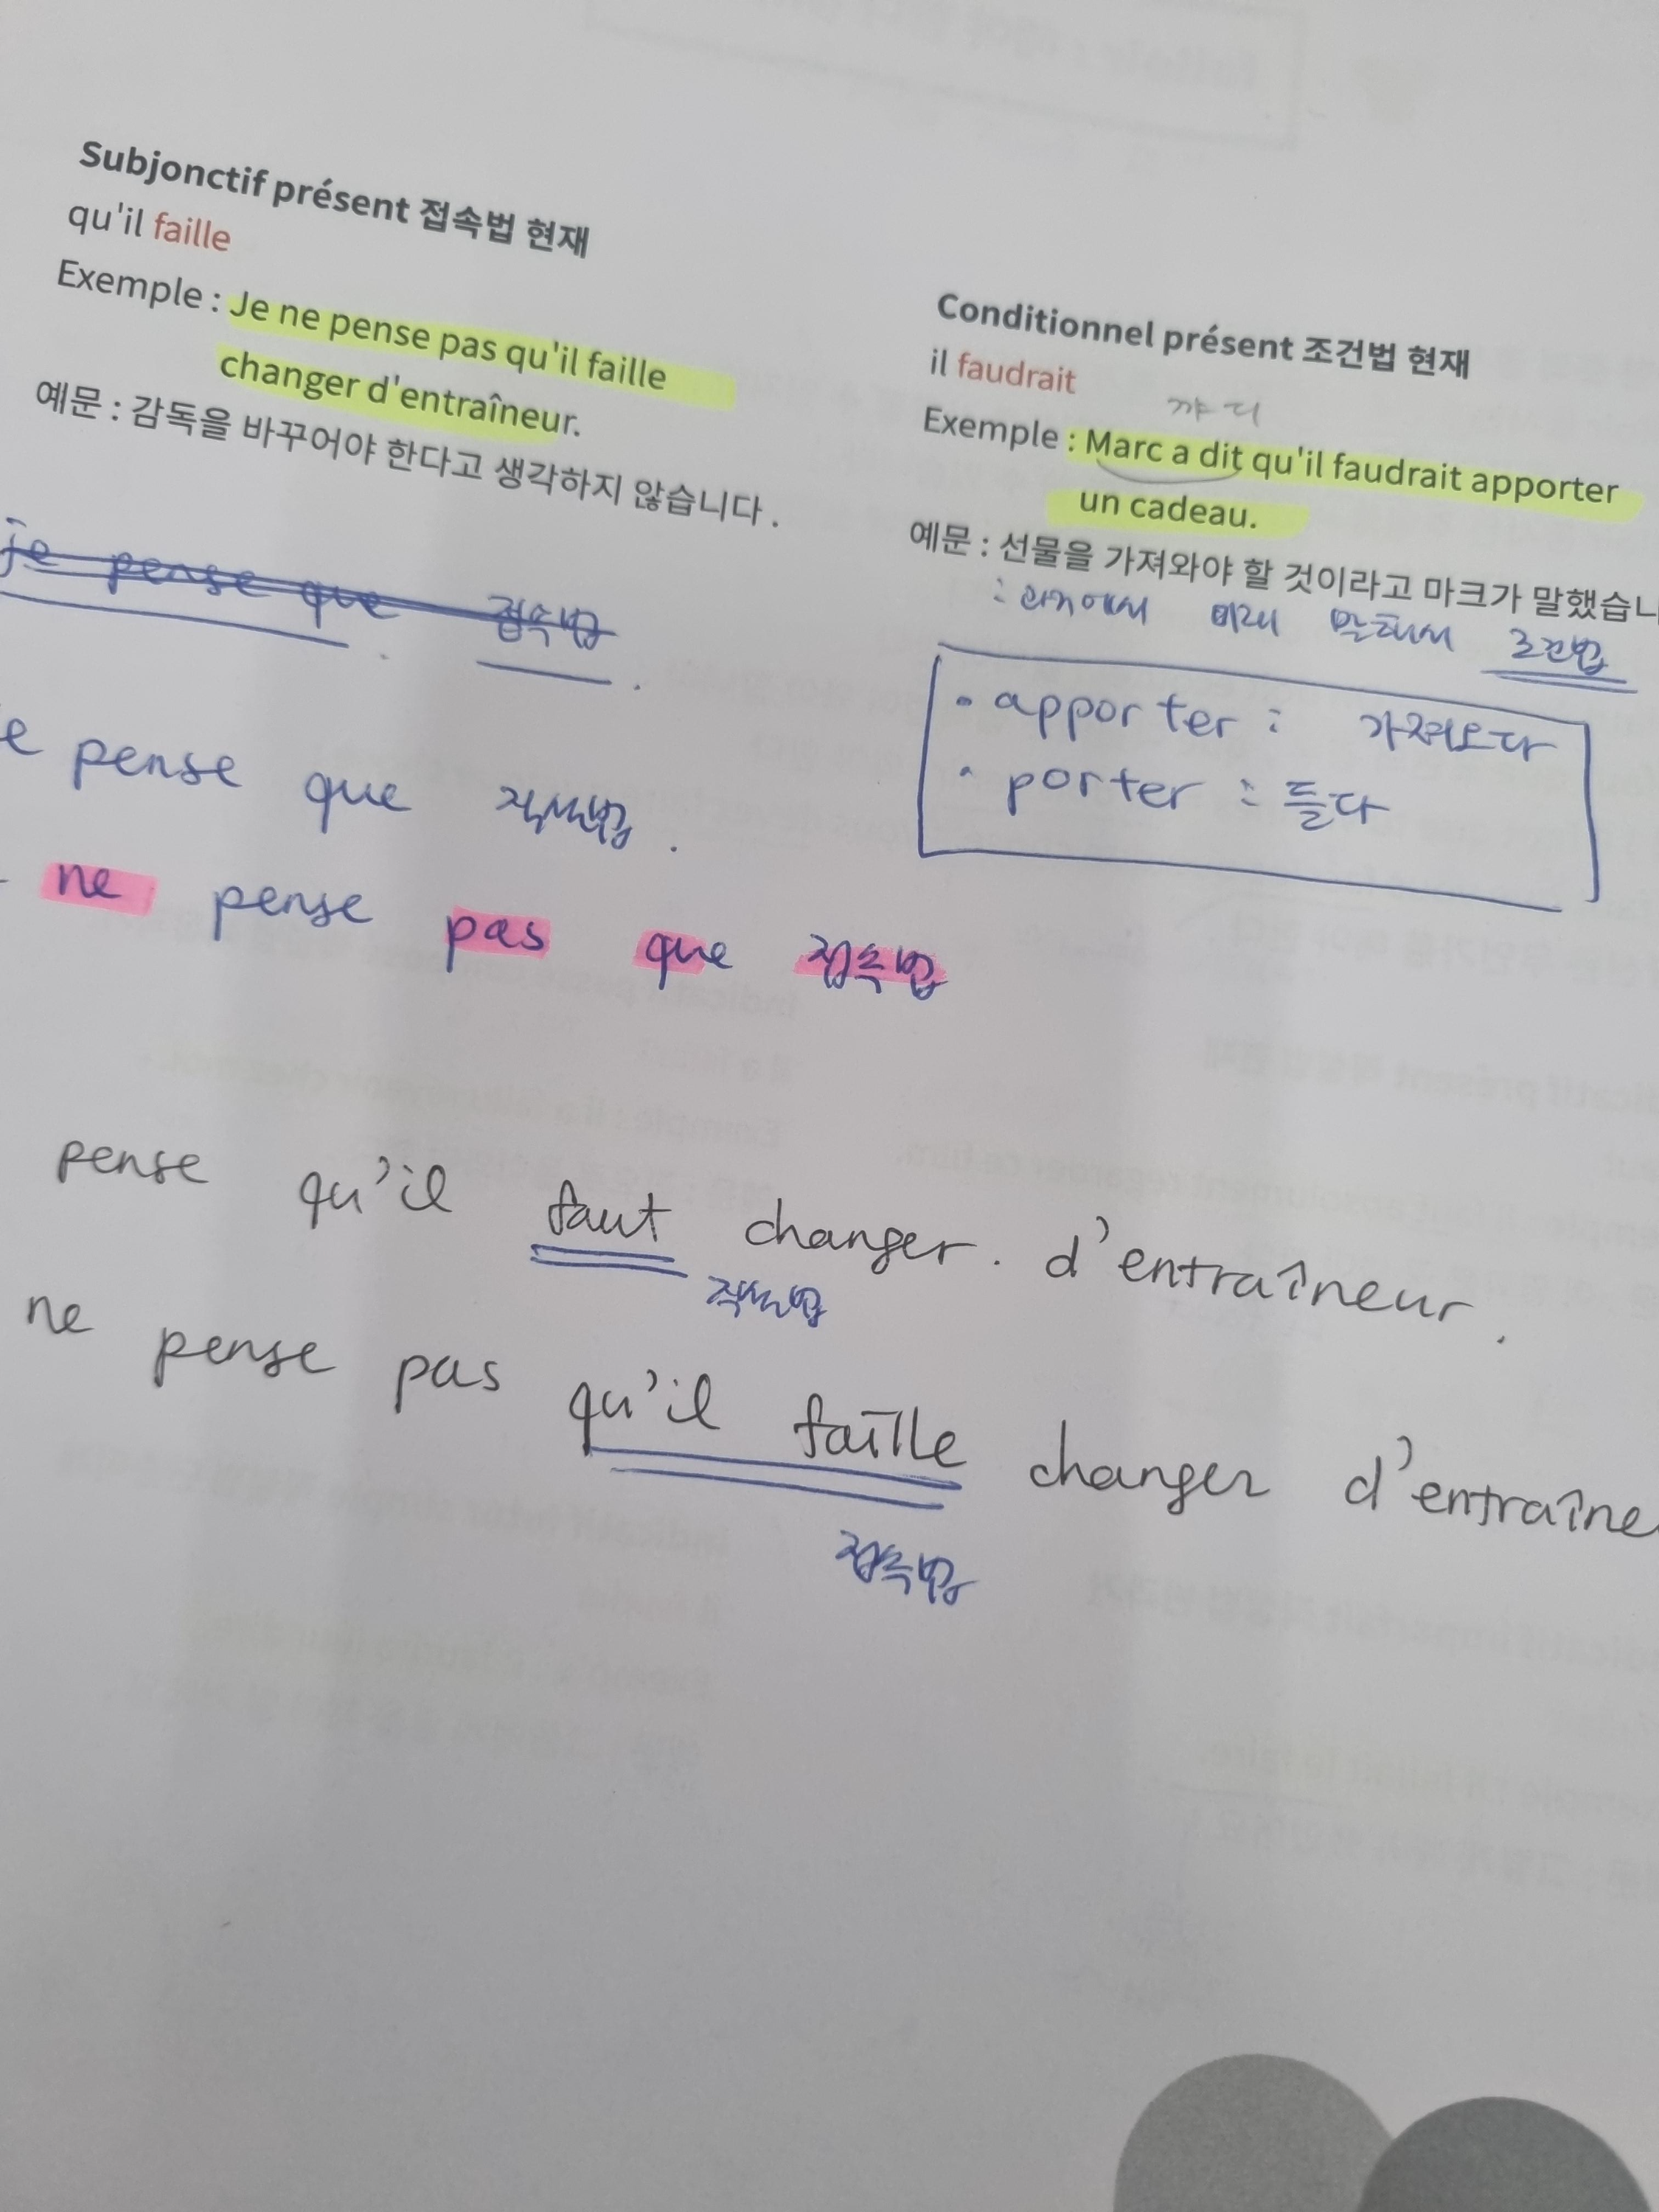 Subjonctif présent 접속법 현재
qu'il faille
Exemple : Je ne pense pas qu'il faille
changer d'entraîneur.
예문 : 감독을 바꾸어야 한다고 생각하지 않습니다.
je pense que 접속법.
e pense que 직설법.
ne pense pas que 접속법
pense qu'il faut changer. d'entraîneur.
직설법
ne pense pas qu'il faille changer d'entraîne
접속법
Conditionnel présent 조건법 현재
il faudrait
꺄 디
Exemple : Marc a dit qu'il faudrait apporter
un cadeau.
예문 : 선물을 가져와야 할 것이라고 마크가 말했습니
: 과거에서 미래 말해서 조건법
• apporter : 가져오다
• porter : 들다